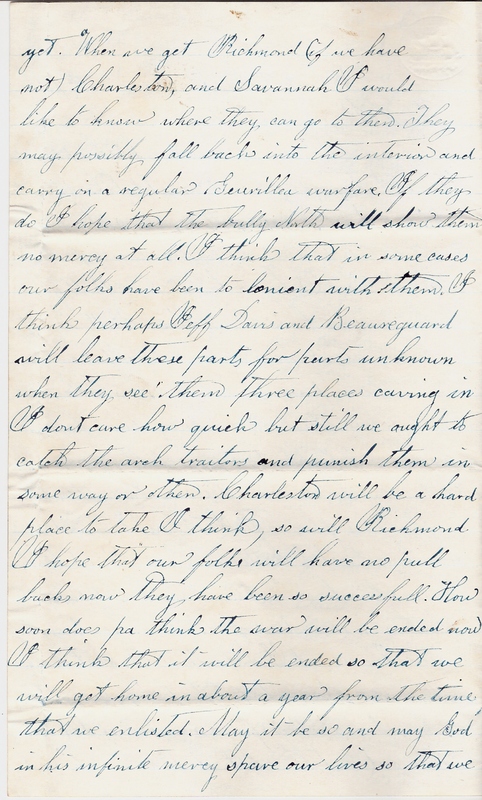 yet. When we get Richmond (if we have
not) Charleston, and Savannah I would
like to know where they can go to then. They
may possibly fall back into the interior and
carry on a regular Geurillea warfare. If they
do I hope that the bully North will show them
no mercy at all. I think that in some cases
our folks have been to lenient with them. I
think perhaps Jeff Davis and Beaureguard
will leave these parts for parts unknown
when they see them three places caving in
I dont care how quick but still we aught to
catch the arch traitors and punish them in
some way or other. Charleston will be a hard
place to take I think, so will Richmond
I hope that our folks will have no pull
back now they have been so successfull. How
soon does pa think the war will be ended now
I think that it will be ended so that we
will get home in about a year from the time
that we enlisted. May it be so and may God
in his infinite mercy spare our lives so that we